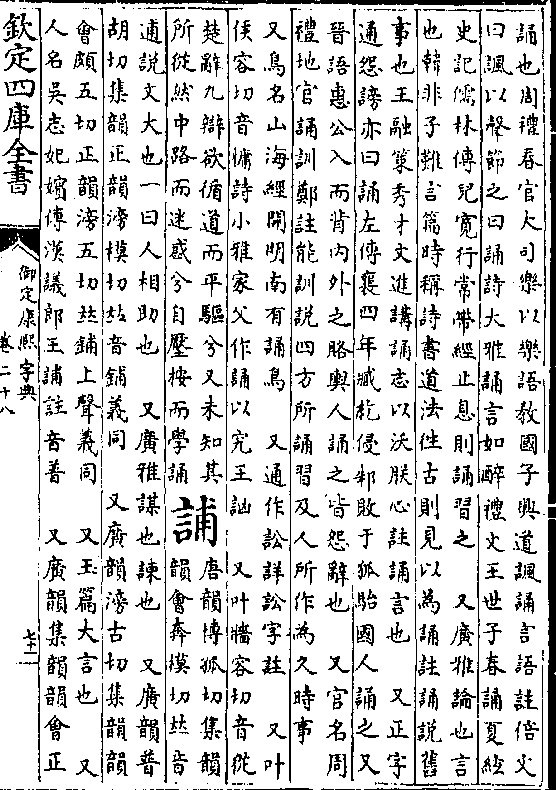 誦也周禮春官大司樂以樂語敎國子興道諷誦言語註倍文
曰諷以聲節之曰誦詩大雅誦言如醉禮文王世子春誦夏絃
史記儒林傳兒寬行常帶經止息則誦習之　又廣雅論也言
也韓非子難言篇時稱詩書道法往古則見以為誦註誦說舊
事也王融策秀才文進講誦志以沃朕心註誦言也　又正字
通怨謗亦曰誦左傳襄四年臧紇侵邾敗于狐駘國人誦之又
晉語惠公入而背內外之賂輿人誦之皆怨辭也　又官名周
禮地官誦訓鄭註能訓說四方所誦習及人所作為久時事
又鳥名山海經開明南有誦鳥　又通作訟詳訟字註　又叶
侯容切音慵詩小雅家父作誦以究王訩　又叶牆容切音從
楚辭九辯欲循道而平驅兮又未知其
所從然中路而迷惑兮自壓按而學誦
誧
唐韻博孤切集韻
韻會奔模切𠀤音
逋說文大也一曰人相助也　又廣雅謀也諫也　又廣韻普
胡切集韻正韻滂模切𠀤音鋪義同　又廣韻滂古切集韻韻
會頗五切正韻滂五切𠀤鋪上聲義同　又玉篇大言也　又
人名吳志妃嬪傳漢議郎王誧註音普　又廣韻集韻韻會正
欽定四庫全書
御定康熙字典
卷二十八
七十二